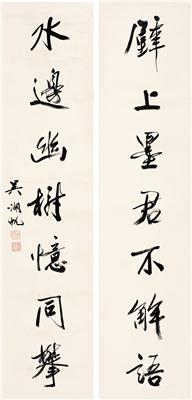 壁上墨君不解語
水邊幽樹憶同攀
吳湖帆